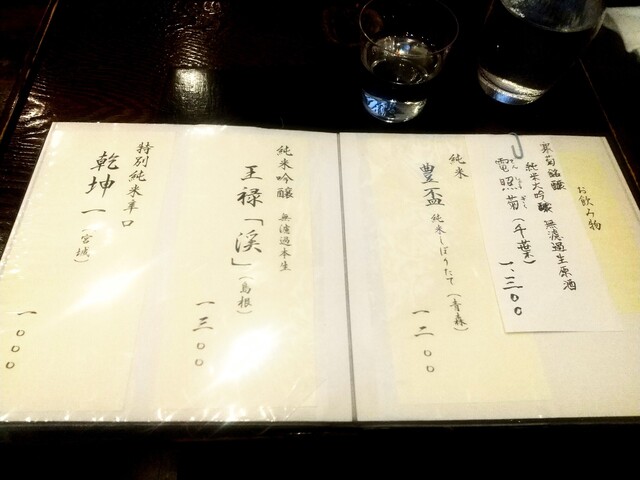 お飲み物
寒菊銘醸
純米大吟醸 無濾過生原酒
電照菊(千葉)
一、三〇〇
純米
豊盃 純米しぼりたて(青森)
一二〇〇
純米吟醸 無濾過本生
王禄「渓」(島根)
一三〇〇
特別純米辛口
乾坤一(宮城)
一〇〇〇